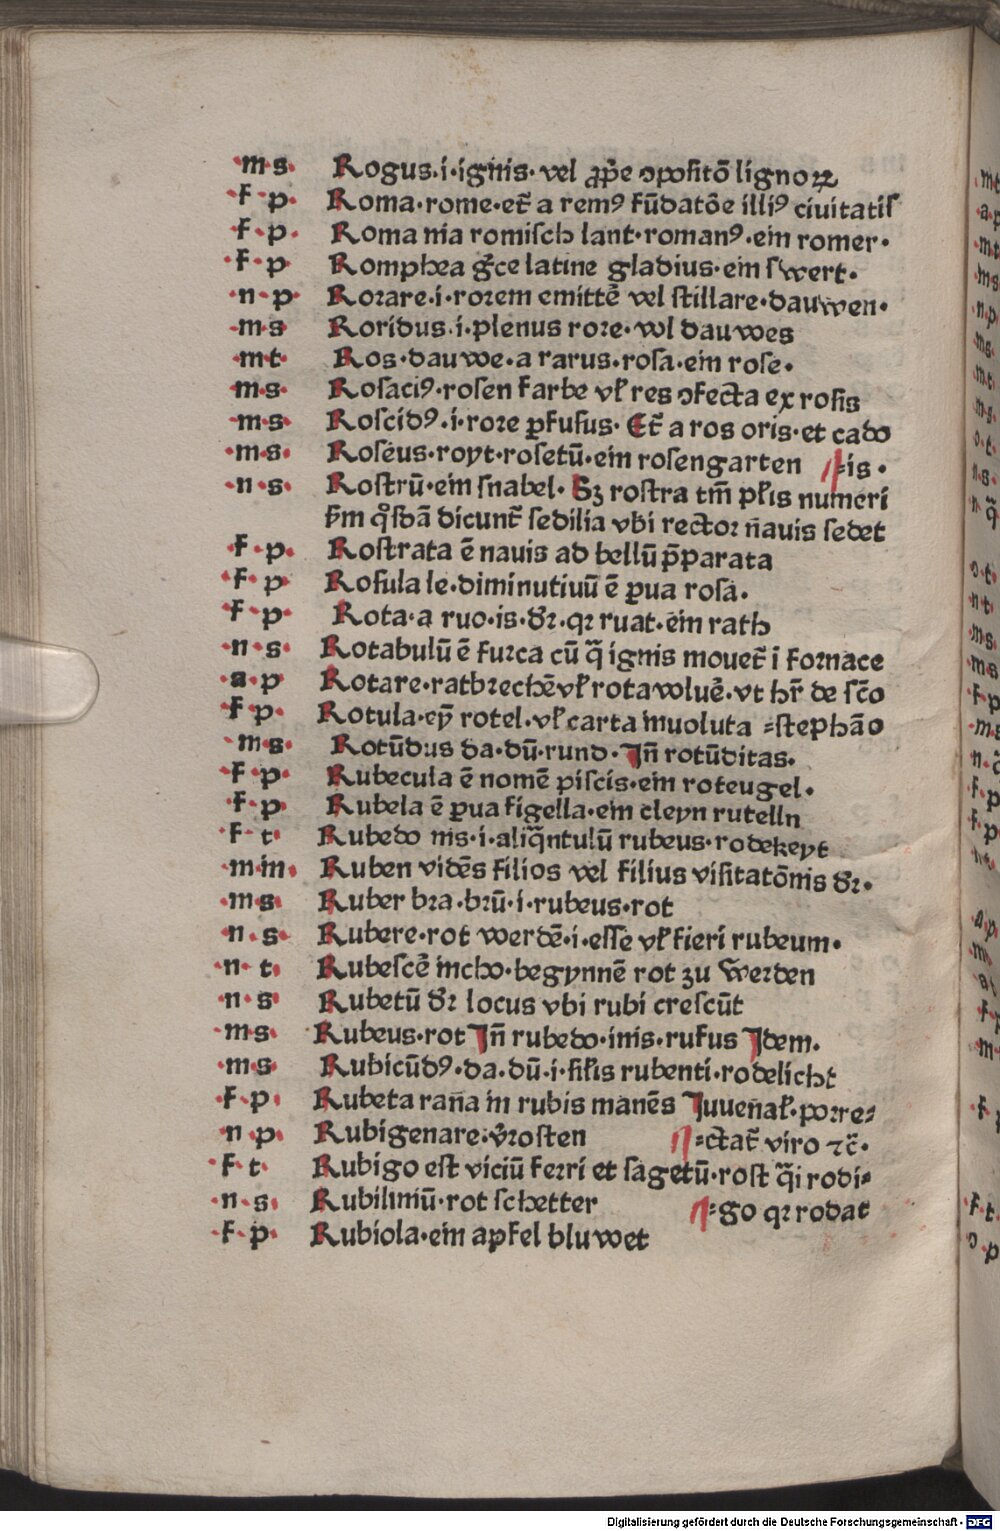 ·m·s· Rogus·i·ignis·vel ꝓpͤe ↄpositōlignoꝝ
·f·p· Roma·rome·et̄ a rem⁹ fūdatōe illi⁹ ciuitatis
·f·p· Roma nia romisch lant·roman⁹·ein romer·
·f·p· Romphea gͤce latine gladius·ein swert·
·n·p· Rorare·i·rorem emittē vel stillare·dauwen·
·m·s· Roridus·i·plenus rore·vol dauwes
·m·t· Ros·dauwe·a rarus·rosa·ein rose·
·m·s· Rosaci⁹·rosen farbe vl̕ res ↄfecta ex rosis
·m·s· Roscid⁹·i·rore ꝑfusus· Et̄ a ros oris·et cado
·m·s· Roseus·royt·rosetū·ein rosengarten ¶=is·
·n·s· Rostrū·ein snabel· Sꝫ rostra tm̄ pl̕is numeri
ẜm qͦsdā dicunt̄ sedilia vbi rector nauis sedet
·f·p· Rostrata ē nauis ad bellū p̄parata
·f·p· Rosula le·diminutiuū ē ꝑua rosa·
·f·p· Rota·a ruo·is·dr̄·qꝛ ruat·ein rath
·n·s· Rotabulū ē furca cū qͣ ignis mouet̄ ī fornace
·a·p Rotare·ratbrechē vl̕ rota voluē·vt hr̄ de sc̄o
·f·p· Rotula·eyn̄ rotel·vl̕ carta inuoluta =stephāo
·m·s· Rotūdus da·dū·rund·Jn̄ rotūditas·
·f·p· Rubecula ē nomē piscis·ein roteugel·
·f·p· Rubela ē ꝑua figella·ein cleyn rutelln
·f·t· Rubedo nis·i·aliqͣntulū rubeus·rodekeyt
·m·m· Ruben vidēs filios vel filius visitatōnis dr̄·
·m·s· Ruber bra·brū·i·rubeus·rot
·n·s· Rubere·rot werdē·i·esse vl̕ fieri rubeum·
·n·t· Rubescē incho·begynnē rot zu werden
·n·s· Rubetū dr̄ locus vbi rubi crescūt
·m·s· Rubeus·rot Jn̄ rubedo·inis·rufus Jdem·
·m·s· Rubicūd⁹·da·dū·i·sil̕is rubenti·rodelicht
·f·p· Rubeta rana in rubis manēs Juuenal̕·porre=
·n·p· Rubigenare·v̄rosten ¶=ctat̄ viro ⁊c̄·
·f·t· Rubigo est viciū ferri et sagetū·rost qͣi rodi=
·n·s· Rubiliniū·rot schetter ¶=go qꝛ rodat
·f·p· Rubiola·ein apfel bluwet
Digitalisierung gefördert durch die Deutsche Forschungsgemeinschaft - DFG